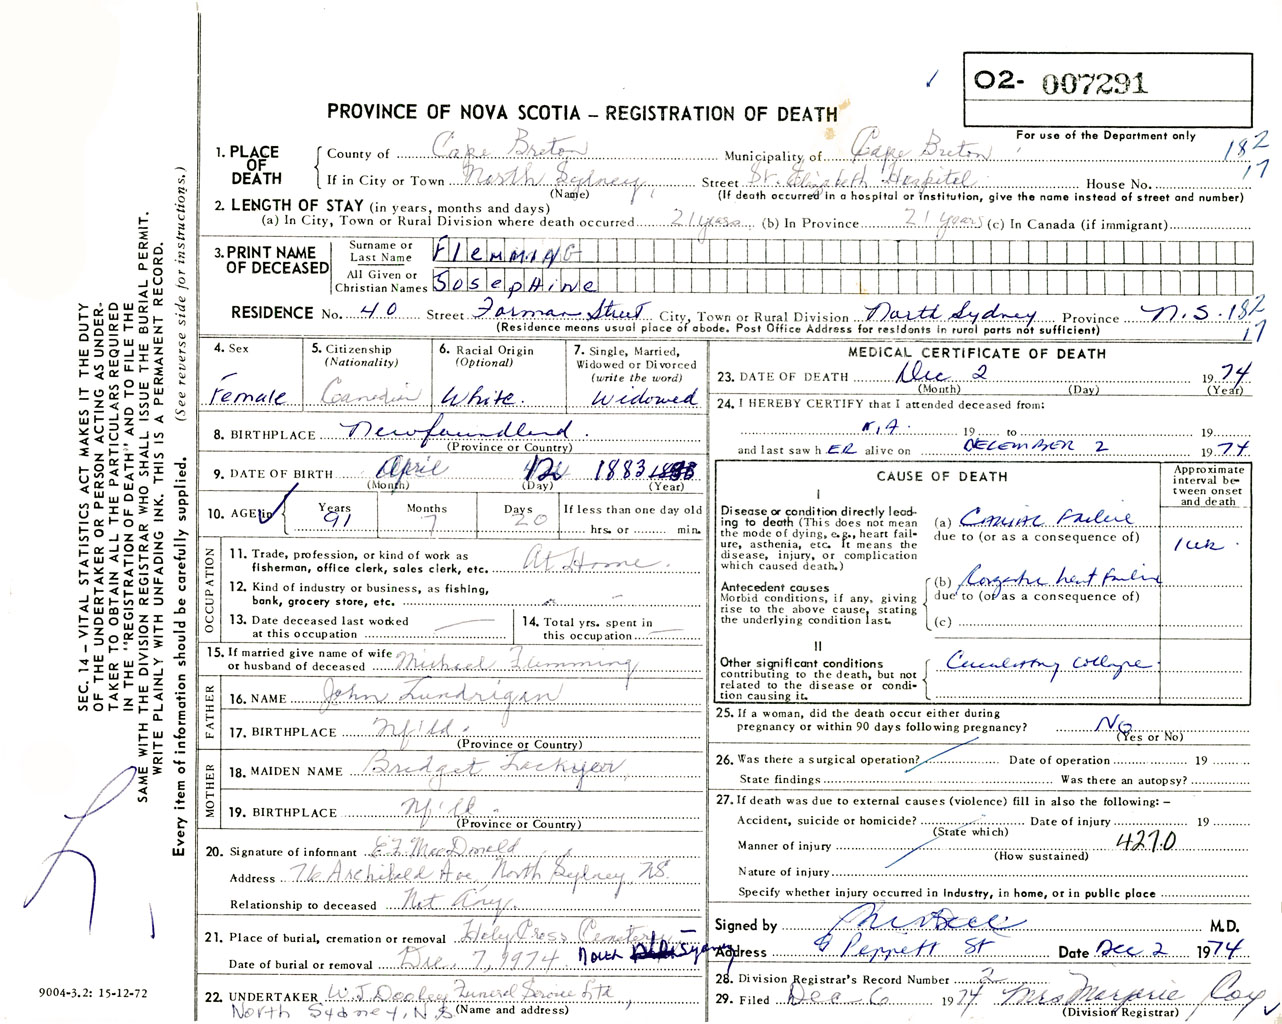 O2- 007291
PROVINCE OF NOVA SCOTIA – REGISTRATION OF DEATH
For use of the Department only
182
17
1. PLACE OF DEATH
County of Cape Breton Municipality of Cape Breton
If in City or Town North Sydney, Street St. Elizabeth Hospital House No.
(Name) (If death occurred in a hospital or institution, give the name instead of street and number)
2. LENGTH OF STAY (in years, months and days)
(a) In City, Town or Rural Division where death occurred 21 years (b) In Province 21 years (c) In Canada (if immigrant)
3. PRINT NAME OF DECEASED
Surname or Last Name FlemmING
All Given or Christian Names JosepHine
RESIDENCE No. 40 Street Forman Street City, Town or Rural Division North Sydney Province N.S. 182
(Residence means usual place of abode. Post Office Address for residents in rural parts not sufficient) 17
4. Sex
Female
5. Citizenship (Nationality)
Canadian
6. Racial Origin (Optional)
White.
7. Single, Married, Widowed or Divorced (write the word)
Widowed
8. BIRTHPLACE Newfoundland.
(Province or Country)
9. DATE OF BIRTH April 12 1883
(Month) (Day) (Year)
10. AGE in Years Months Days If less than one day old
91 7 20 hrs. or min.
OCCUPATION
11. Trade, profession, or kind of work as
fisherman, office clerk, sales clerk, etc. At Home.
12. Kind of industry or business, as fishing,
bank, grocery store, etc.
13. Date deceased last worked
at this occupation
14. Total yrs. spent in
this occupation
15. If married give name of wife
or husband of deceased Michael Flemming
FATHER
16. NAME John Lundrigan
17. BIRTHPLACE Nf'ld.
(Province or Country)
MOTHER
18. MAIDEN NAME Bridget Lockyer
19. BIRTHPLACE Nf'ld.
(Province or Country)
20. Signature of informant E F MacDonald
Address 76 Archibald Ave, North Sydney, NS.
Relationship to deceased Not Any.
21. Place of burial, cremation or removal Holy Cross Cemetery
North Sydney
Date of burial or removal Dec. 7, 1974
22. UNDERTAKER W J Dooley Funeral Service Ltd,
(Name and address)
North Sydney, N.S
MEDICAL CERTIFICATE OF DEATH
23. DATE OF DEATH Dec 2 1974
(Month) (Day) (Year)
24. I HEREBY CERTIFY that I attended deceased from:
N.A. 19 to 19
and last saw h ER alive on DECEMBER 2 1974
CAUSE OF DEATH
Approximate interval between onset and death
I
Disease or condition directly leading to death (This does not mean the mode of dying, e.g., heart failure, asthenia, etc. It means the disease, injury, or complication which caused death.)
(a) Cardiac Failure
due to (or as a consequence of)
1 wk.
Antecedent causes
Morbid conditions, if any, giving rise to the above cause, stating the underlying condition last.
(b) Congestive heart Failure
due to (or as a consequence of)
(c)
II
Other significant conditions contributing to the death, but not related to the disease or condition causing it.
Circulatory collapse
25. If a woman, did the death occur either during
pregnancy or within 90 days following pregnancy? No
(Yes or No)
26. Was there a surgical operation? Date of operation 19
State findings Was there an autopsy?
27. If death was due to external causes (violence) fill in also the following: –
Accident, suicide or homicide? Date of injury 19
(State which)
Manner of injury 4270
(How sustained)
Nature of injury
Specify whether injury occurred in Industry, in home, or in public place
Signed by M.D.
Address 9 Peppett St Date Dec 2 1974
28. Division Registrar's Record Number 2
29. Filed Dec 6 1974 Mrs Marjorie Cox
(Division Registrar)
SEC. 14 – VITAL STATISTICS ACT MAKES IT THE DUTY
OF THE UNDERTAKER OR PERSON ACTING AS UNDER-
TAKER TO OBTAIN ALL THE PARTICULARS REQUIRED
IN THE "REGISTRATION OF DEATH" AND TO FILE THE
SAME WITH THE DIVISION REGISTRAR WHO SHALL ISSUE THE BURIAL PERMIT.
WRITE PLAINLY WITH UNFADING INK. THIS IS A PERMANENT RECORD.
Every item of information should be carefully supplied. (See reverse side for instructions.)
9004-3.2: 15-12-72